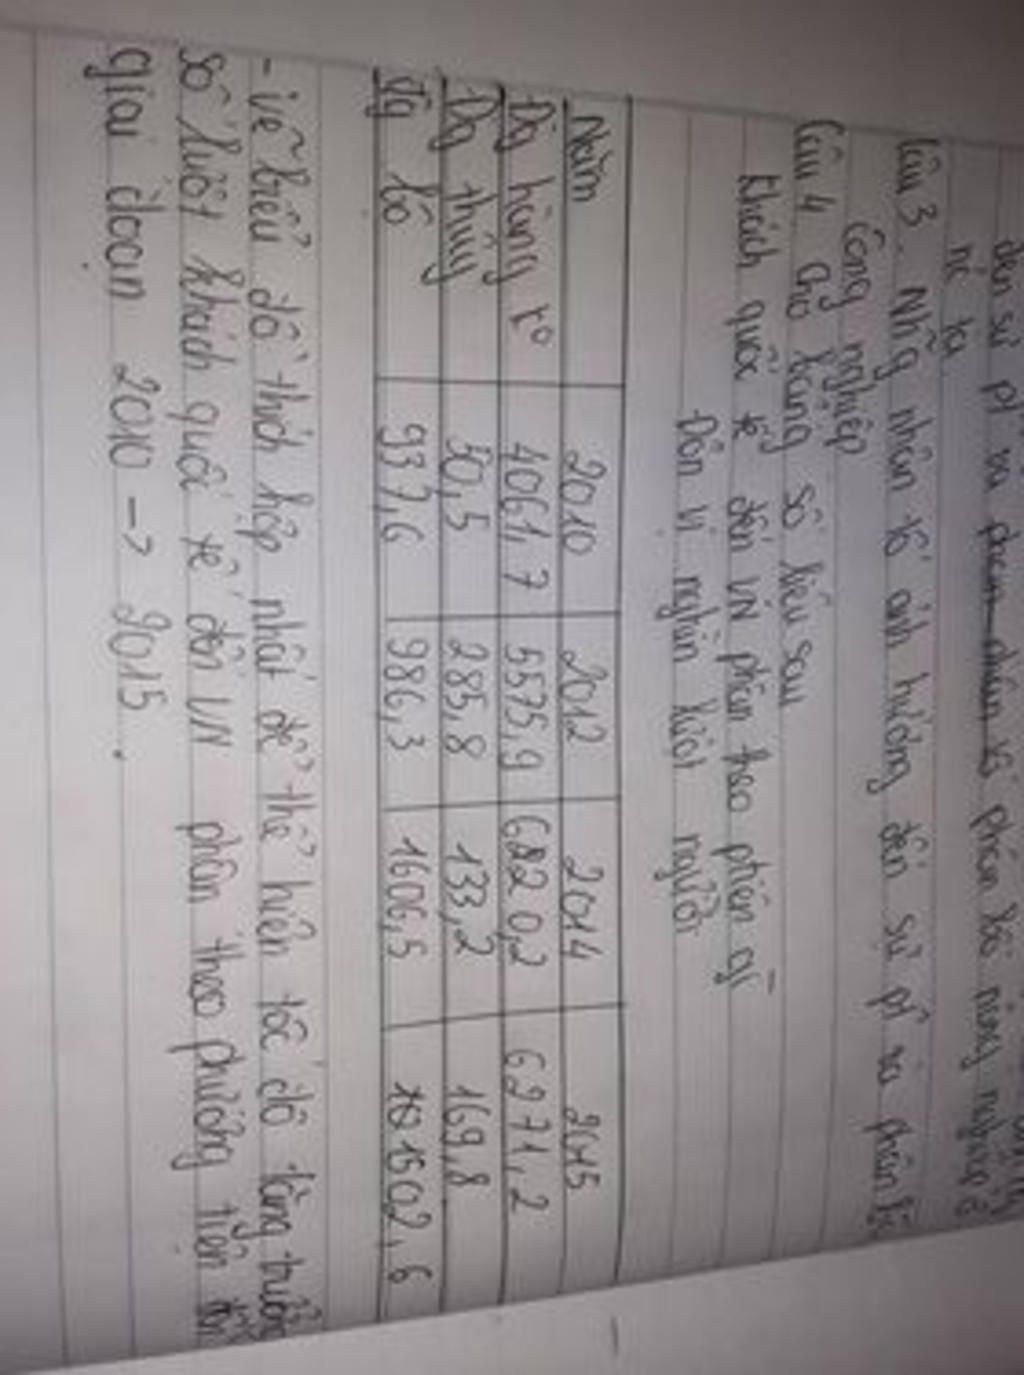 đến sự pt và phân bố nông nghiệp ở
nc ta
Câu 3. Nhg nhân tố ảnh hưởng đến sự pt và phân bố
Công nghiệp
Câu 4 Cho bảng số liệu sau
Khách quốc tế đến VN phân theo ptiện gì
Đơn vị nghìn lượt người
Năm 2010 2012 2014 2015
Đg hàng k° 4061,7 5575,9 6220,2 6271,2
Đg thủy 50,5 285,8 133,2 169,8
Đg bộ 937,6 986,3 1606,5 1502,6
- Vẽ biểu đồ thích hợp nhất để thể hiện tốc độ tăng trưởng
số lượt khách quốc tế đến VN phân theo phương tiện đến
giai đoạn 2010 -> 2015.